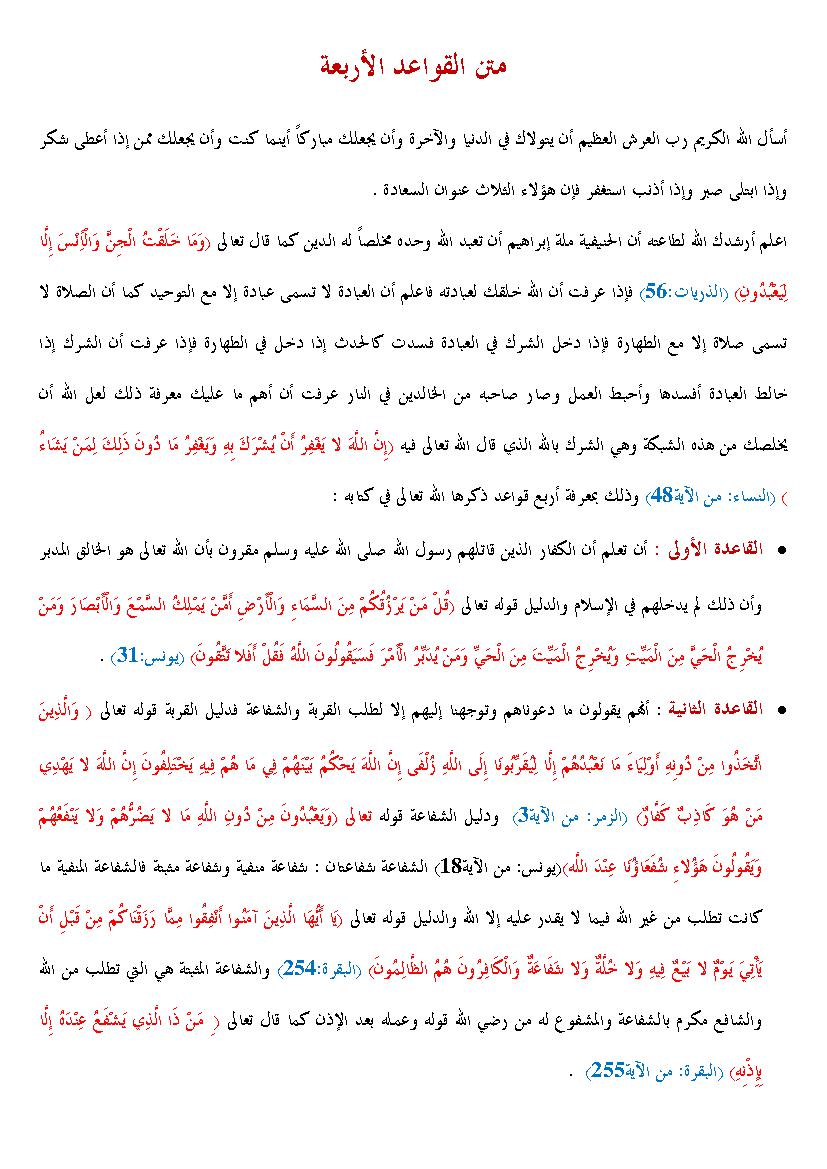 متن القواعد الأربعة
أسأل الله الكريم رب العرش العظيم أن يتولاك في الدنيا والآخرة وأن يجعلك مباركاً أينما كنت وأن يجعلك ممن إذا أعطى شكر
وإذا ابتلى صبر وإذا أذنب استغفر فإن هؤلاء الثلاث عنوان السعادة .
اعلم أرشدك الله لطاعته أن الحنيفية ملة إبراهيم أن تعبد الله وحده مخلصاً له الدين كما قال تعالى (وَمَا خَلَقْتُ الْجِنَّ وَالْأِنْسَ إِلَّا
لِيَعْبُدُونِ) (الذريات:56) فإذا عرفت أن الله خلقك لعبادته فاعلم أن العبادة لا تسمى عبادة إلا مع التوحيد كما أن الصلاة لا
تسمى صلاة إلا مع الطهارة فإذا دخل الشرك في العبادة فسدت كالحدث إذا دخل في الطهارة فإذا عرفت أن الشرك إذا
خالط العبادة أفسدها وأحبط العمل وصار صاحبه من الخالدين في النار عرفت أن أهم ما عليك معرفة ذلك لعل الله أن
يخلصك من هذه الشبكة وهي الشرك بالله الذي قال الله تعالى فيه (إِنَّ اللَّهَ لا يَغْفِرُ أَنْ يُشْرَكَ بِهِ وَيَغْفِرُ مَا دُونَ ذَلِكَ لِمَنْ يَشَاءُ
) (النساء: من الآية48) وذلك بمعرفة أربع قواعد ذكرها الله تعالى في كتابه :
● القاعدة الأولى : أن تعلم أن الكفار الذين قاتلهم رسول الله صلى الله عليه وسلم مقرون بأن الله تعالى هو الخالق المدبر
وأن ذلك لم يدخلهم في الإسلام والدليل قوله تعالى (قُلْ مَنْ يَرْزُقُكُمْ مِنَ السَّمَاءِ وَالْأَرْضِ أَمَّنْ يَمْلِكُ السَّمْعَ وَالْأَبْصَارَ وَمَنْ
يُخْرِجُ الْحَيَّ مِنَ الْمَيِّتِ وَيُخْرِجُ الْمَيِّتَ مِنَ الْحَيِّ وَمَنْ يُدَبِّرُ الْأَمْرَ فَسَيَقُولُونَ اللَّهُ فَقُلْ أَفَلا تَتَّقُونَ) (يونس:31) .
● القاعدة الثانية : أنهم يقولون ما دعوناهم وتوجهنا إليهم إلا لطلب القربة والشفاعة فدليل القربة قوله تعالى ( وَالَّذِينَ
اتَّخَذُوا مِنْ دُونِهِ أَوْلِيَاءَ مَا نَعْبُدُهُمْ إِلَّا لِيُقَرِّبُونَا إِلَى اللَّهِ زُلْفَى إِنَّ اللَّهَ يَحْكُمُ بَيْنَهُمْ فِي مَا هُمْ فِيهِ يَخْتَلِفُونَ إِنَّ اللَّهَ لا يَهْدِي
مَنْ هُوَ كَاذِبٌ كَفَّارٌ) (الزمر: من الآية3) ودليل الشفاعة قوله تعالى (وَيَعْبُدُونَ مِنْ دُونِ اللَّهِ مَا لا يَضُرُّهُمْ وَلا يَنْفَعُهُمْ
وَيَقُولُونَ هَؤُلاءِ شُفَعَاؤُنَا عِنْدَ اللَّه)(يونس: من الآية18) الشفاعة شفاعتان : شفاعة منفية وشفاعة مثبتة فالشفاعة المنفية ما
كانت تطلب من غير الله فيما لا يقدر عليه إلا الله والدليل قوله تعالى (يَا أَيُّهَا الَّذِينَ آمَنُوا أَنْفِقُوا مِمَّا رَزَقْنَاكُمْ مِنْ قَبْلِ أَنْ
يَأْتِيَ يَوْمٌ لا بَيْعٌ فِيهِ وَلا خُلَّةٌ وَلا شَفَاعَةٌ وَالْكَافِرُونَ هُمُ الظَّالِمُونَ) (البقرة:254) والشفاعة المثبتة هي التي تطلب من الله
والشافع مكرم بالشفاعة والمشفوع له من رضي الله قوله وعمله بعد الإذن كما قال تعالى ( مَنْ ذَا الَّذِي يَشْفَعُ عِنْدَهُ إِلَّا
بِإِذْنِهِ) (البقرة: من الآية255) .